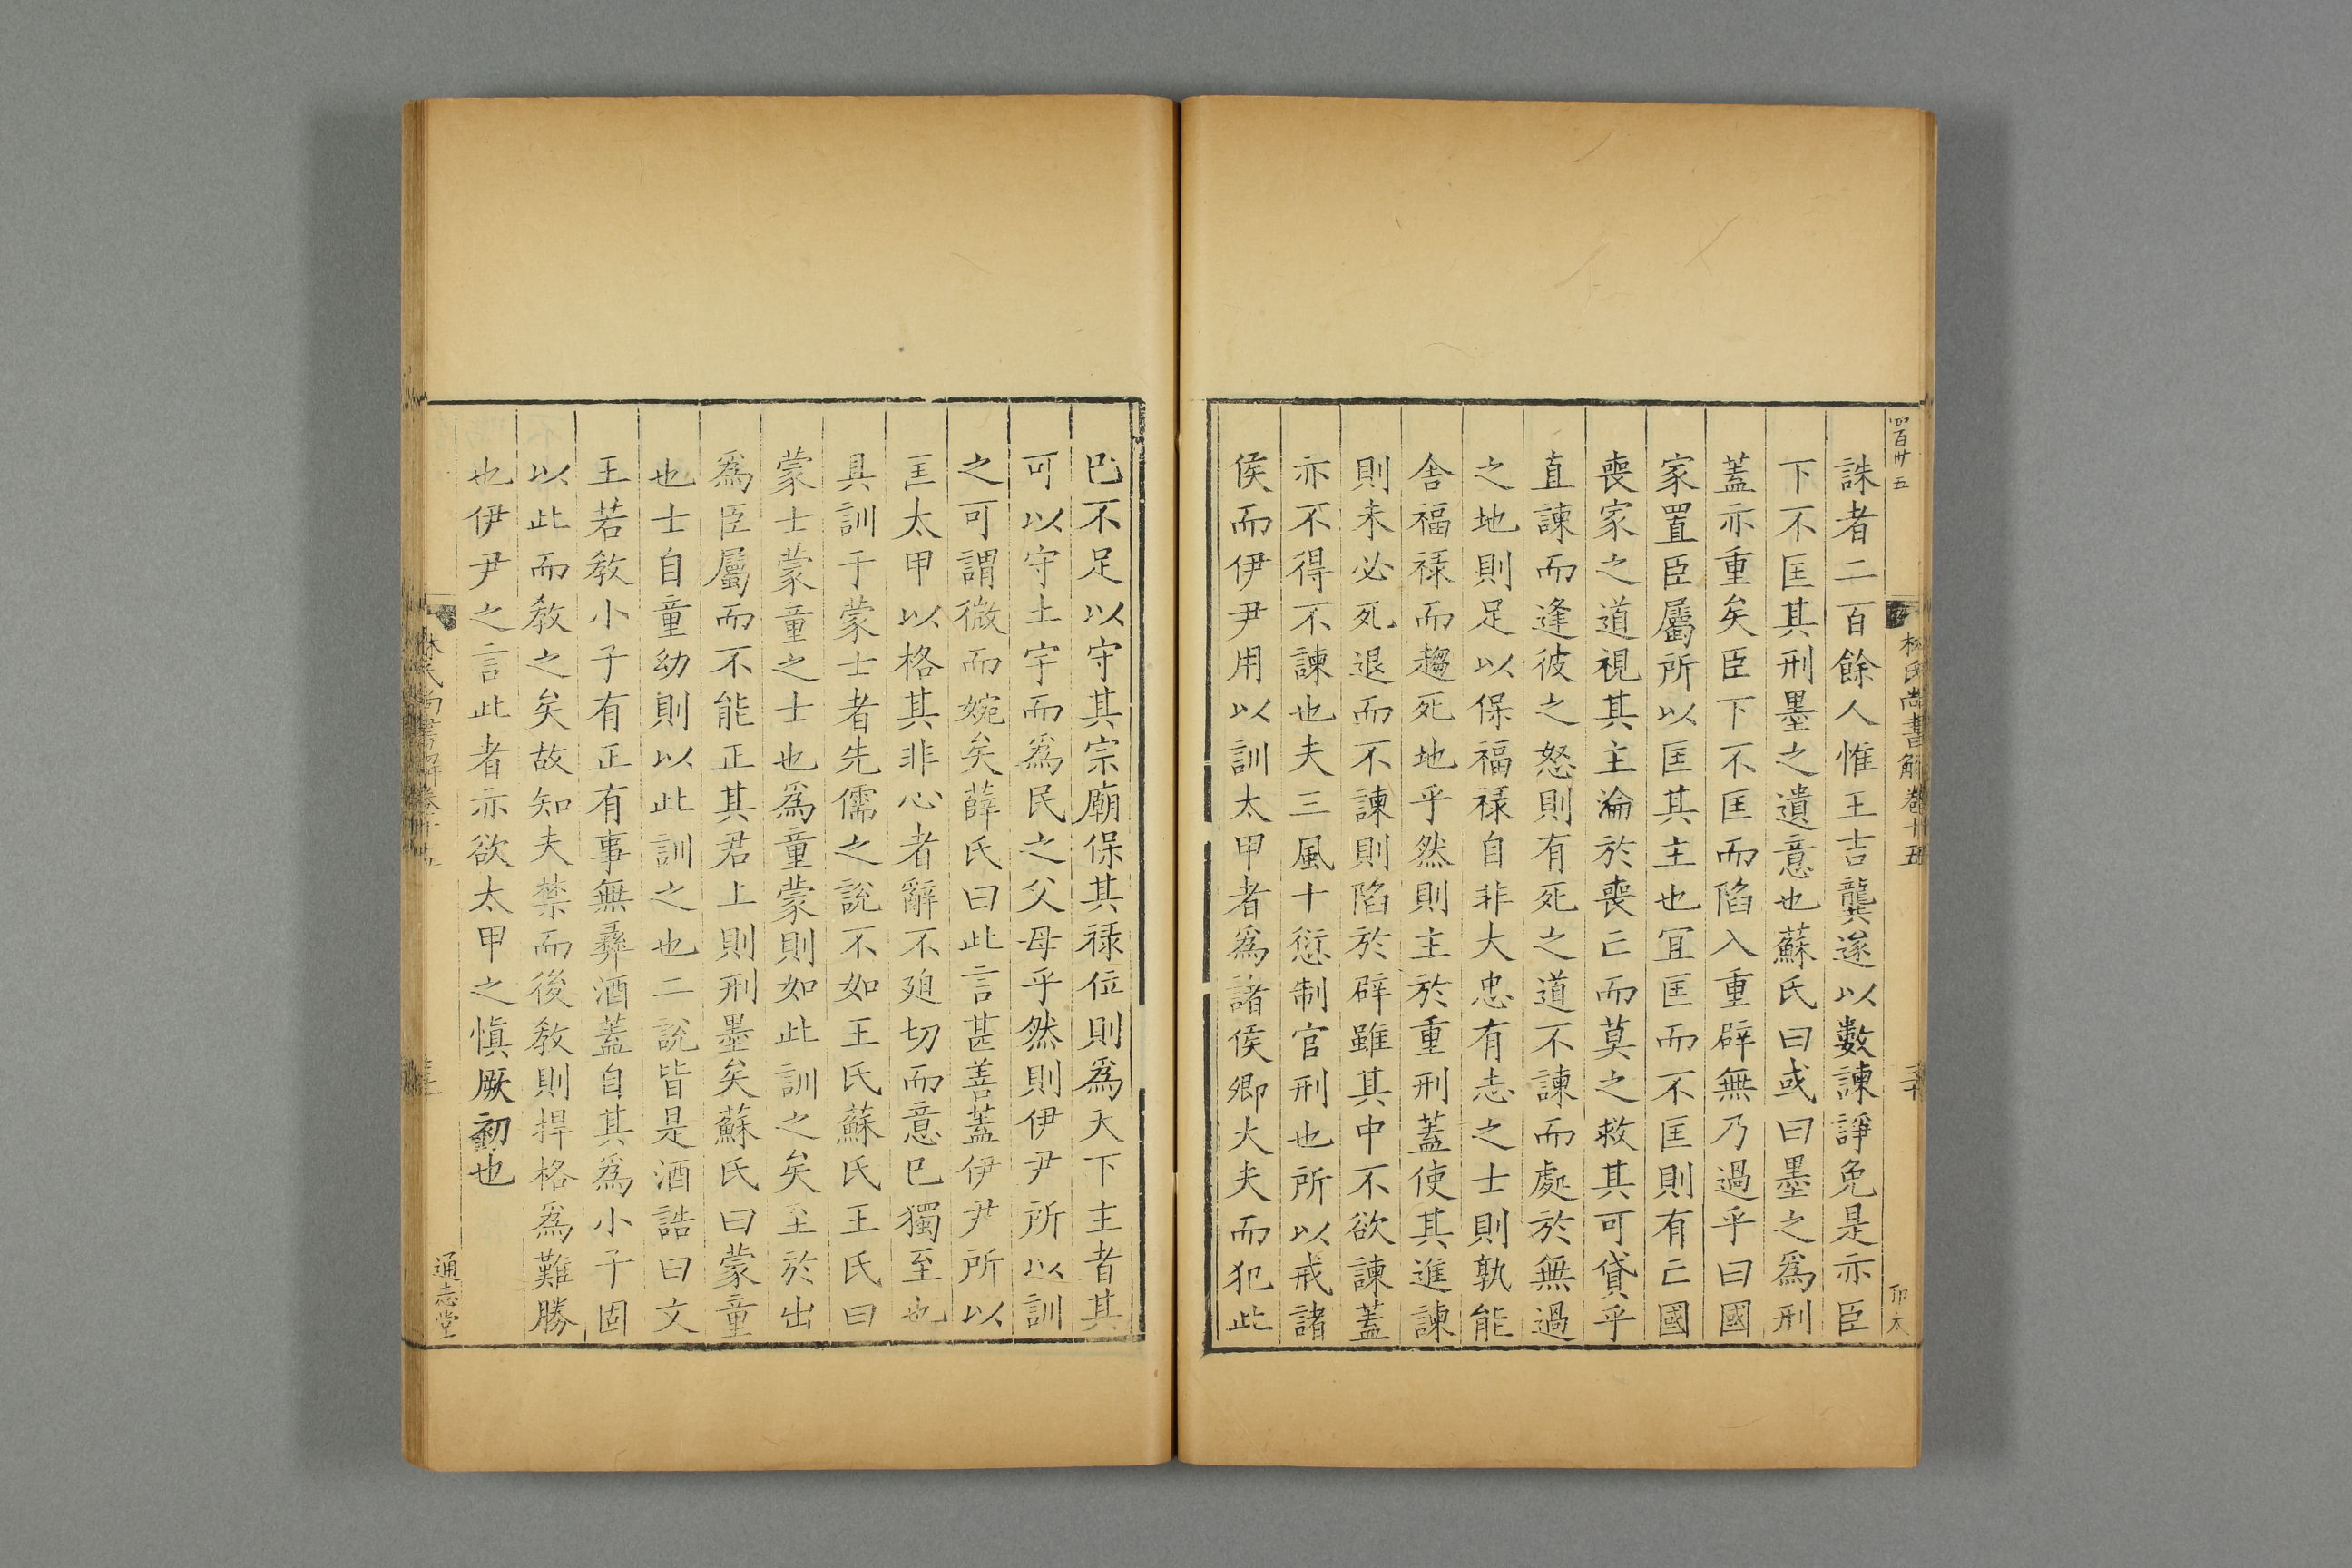 四百卅五
林氏尚書解卷十五
卬太
誅者二百餘人惟王吉龔遂以數諫諍免是亦臣
下不匡其刑墨之遺意也蘇氏曰或曰墨之爲刑
蓋亦重矣臣下不匡而陷入重辟無乃過乎曰國
家置臣屬所以匡其主也冝匡而不匡則有亡國
喪家之道視其主淪於喪亡而莫之救其可貸乎
直諫而逢彼之怒則有死之道不諫而處於無過
之地則足以保福祿自非大忠有志之士則孰能
舍福祿而趨死地乎然則主於重刑蓋使其進諫
則未必死退而不諫則陷於辟雖其中不欲諫蓋
亦不得不諫也夫三風十愆制官刑也所以戒諸
侯而伊尹用以訓太甲者爲諸侯卿大夫而犯此
巳不足以守其宗廟保其祿位則爲天下主者其
可以守土宇而爲民之父母乎然則伊尹所以訓
之可謂微而婉矣薛氏曰此言甚善蓋伊尹所以
匡太甲以格其非心者辭不廹切而意巳獨至也
具訓于蒙士者先儒之說不如王氏蘇氏王氏曰
蒙士蒙童之士也爲童蒙則如此訓之矣至於出
爲臣屬而不能正其君上則刑墨矣蘇氏曰蒙童
也士自童幼則以此訓之也二說皆是酒誥曰文
王若教小子有正有事無彞酒蓋自其爲小子固
以此而教之矣故知夫禁而後教則捍格爲難勝
也伊尹之言此者亦欲太甲之愼厥初也
林氏尚書解卷十五
通志堂